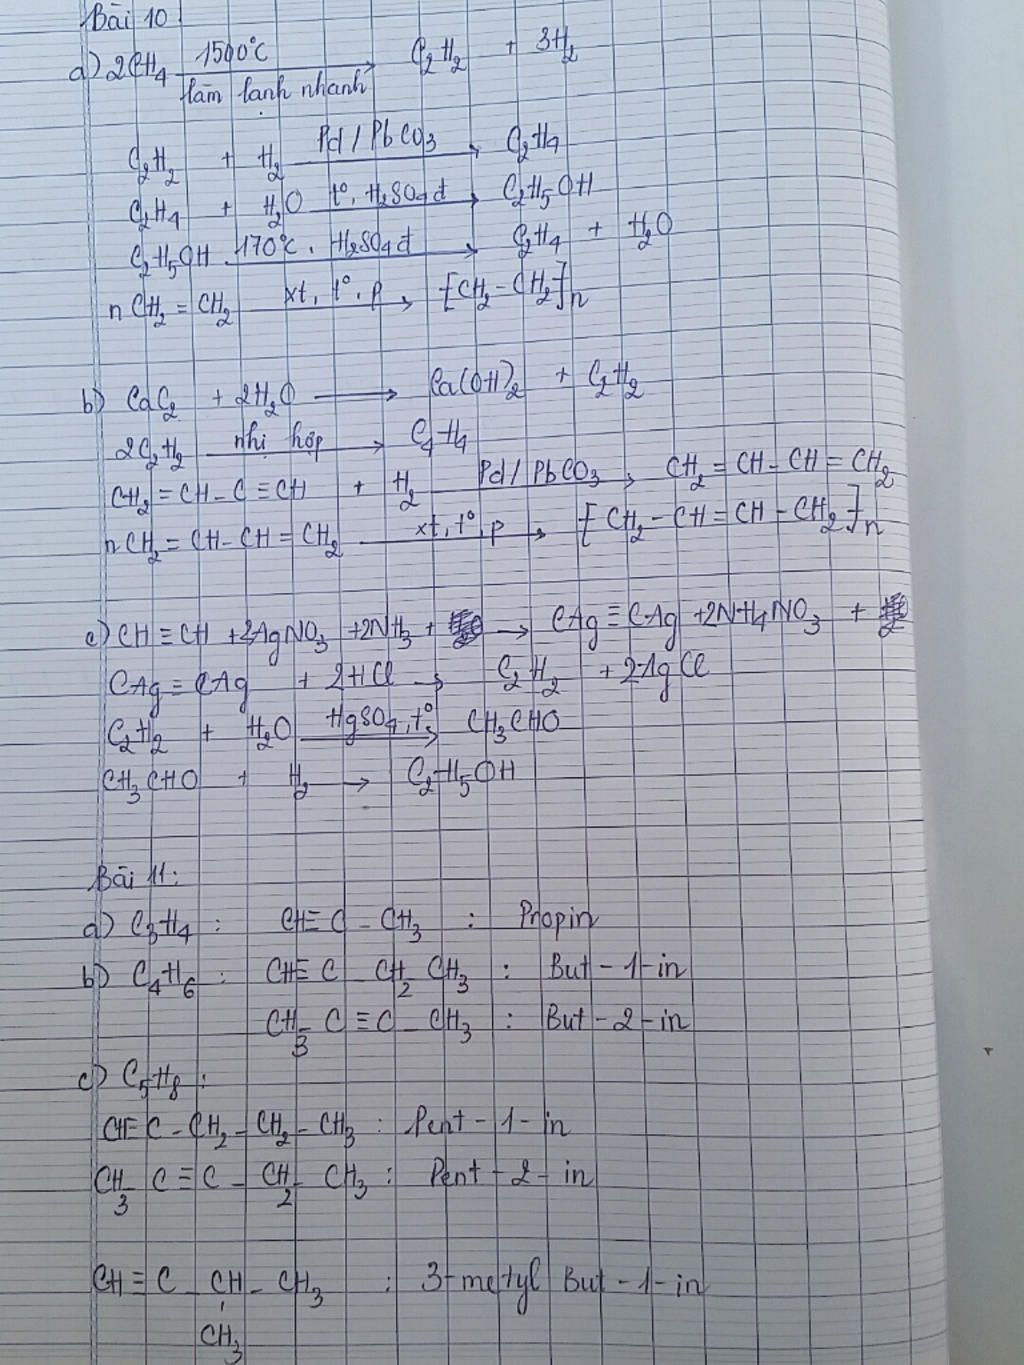 Bài 10
a) 2CH₄ 1500°C làm lạnh nhanh → C₂H₂ + 3H₂
C₂H₂ + H₂ Pd / PbCO₃ → C₂H₄
C₂H₄ + H₂O t°, H₂SO₄ đ → C₂H₅OH
C₂H₅OH 170°C, H₂SO₄ đ → C₂H₄ + H₂O
n CH₂ = CH₂ xt, t°, p → [CH₂ - CH₂]n
b) CaC₂ + 2H₂O → Ca(OH)₂ + C₂H₂
2C₂H₂ nhị hợp → C₄H₄
CH₂ = CH - C ≡ CH + H₂ Pd / PbCO₃ → CH₂ = CH - CH = CH₂
n CH₂ = CH - CH = CH₂ xt, t°, p → [CH₂ - CH = CH - CH₂]n
c) CH ≡ CH + 2AgNO₃ + 2NH₃ + → CAg ≡ CAg + 2NH₄NO₃ +
CAg ≡ CAg + 2HCl → C₂H₂ + 2AgCl
C₂H₂ + H₂O HgSO₄, t° → CH₃CHO
CH₃CHO + H₂ → C₂H₅OH
Bài 11:
a) C₃H₄ : CH ≡ C - CH₃ : Propin
b) C₄H₆ : CH ≡ C - CH₂ - CH₃ : But - 1 - in
CH₃ - C ≡ C - CH₃ : But - 2 - in
c) C₅H₈ :
CH ≡ C - CH₂ - CH₂ - CH₃ : Pent - 1 - in
CH₃ - C ≡ C - CH₂ - CH₃ : Pent - 2 - in
CH ≡ C - CH - CH₃ : 3-metyl But - 1 - in
CH₃